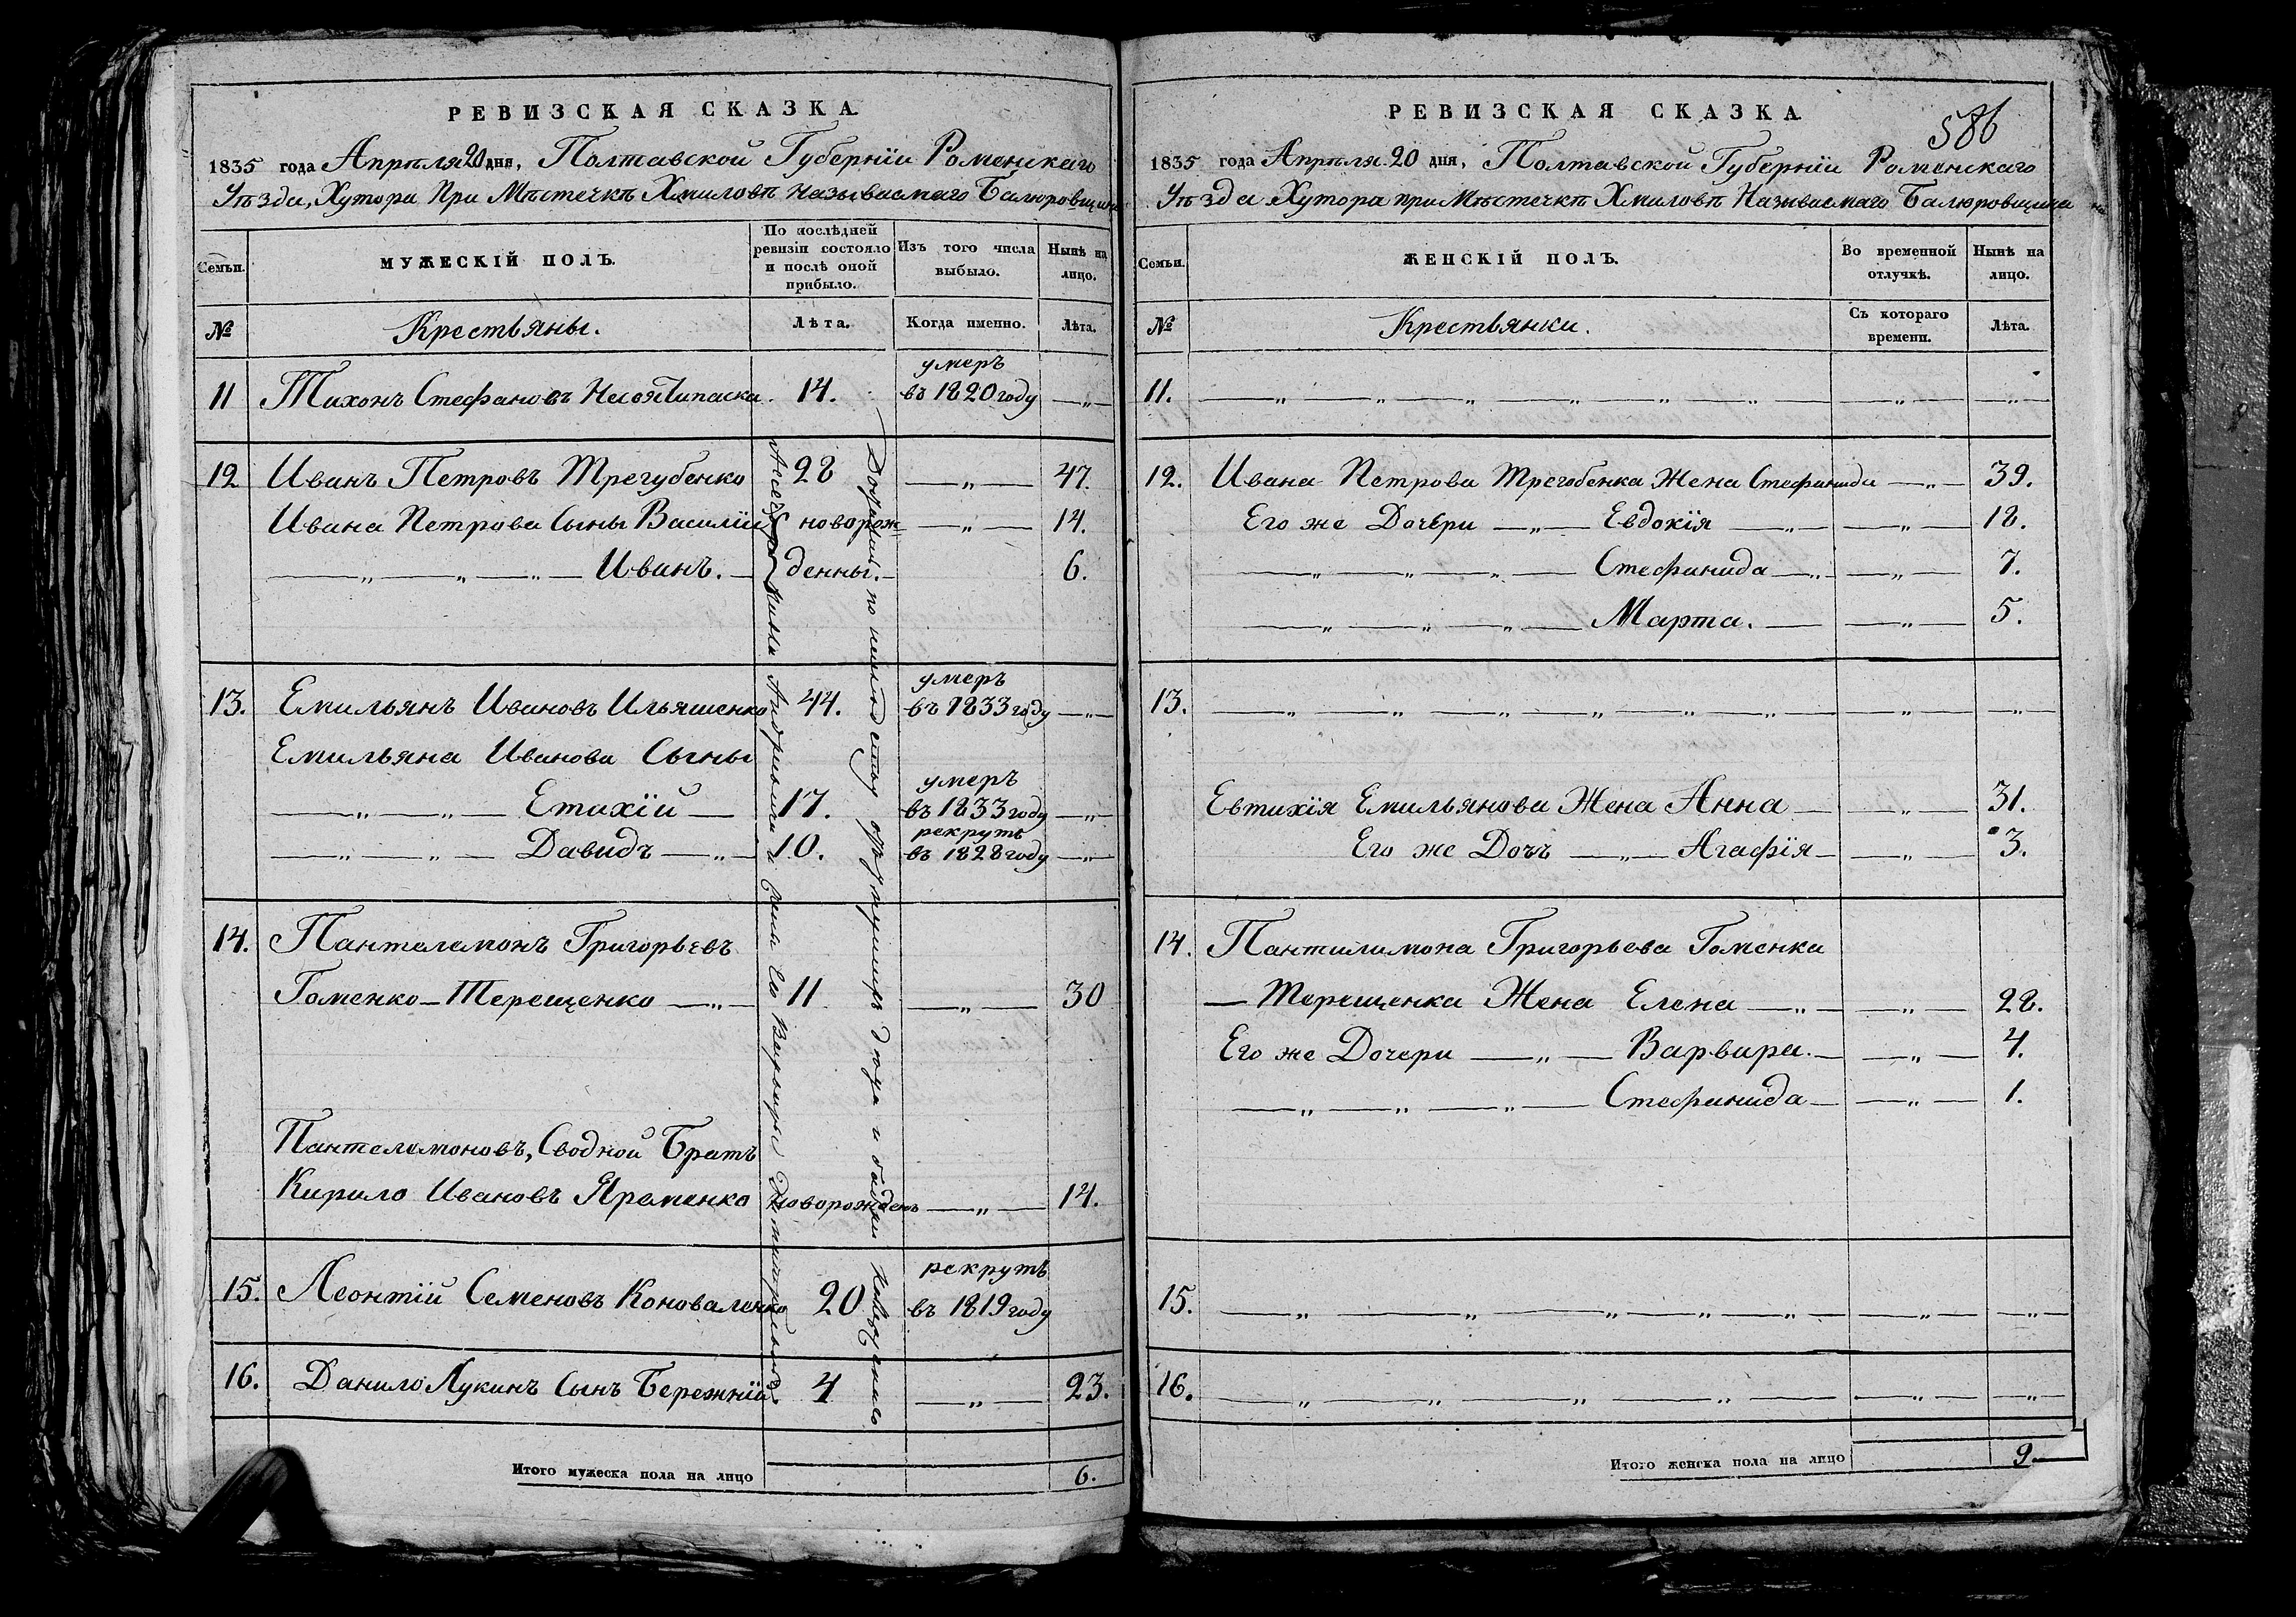 РЕВИЗСКАЯ СКАЗКА.
1835 года Апрѣля 20 дня, Полтавской Губернїи Роменскаго
Уѣзда, Хутора При Мѣстечкѣ Хмиловѣ называемаго Балюровщина
Семьи.
МУЖЕСКІЙ ПОЛЪ.
По послѣдней ревизіи состояло и послѣ оной прибыло.
Изъ того числа выбыло.
Нынѣ на лицо.
№ Крестьяны. Лѣта. Когда именно. Лѣта.
11 Тихонъ Стефановъ 14. умеръ въ 1820 году —„—
12 Иванъ Петровъ Трегубенко 28 —„— 47.
Ивана Петрова Сыны Василїй новорож —„— 14.
—„—„—„— Иванъ. — денны. — 6.
13. Емильянъ Ивановъ Ильяшенко 44. умеръ въ 1833 году —„—
Емильяна Иванова Сыны
—„—„— Етихїй — 17. умеръ въ 1833 году —„—
—„—„— Давидъ —„— 10. рекрутъ въ 1828 году —„—
14. Пантелемонъ Григорьевъ
Гоменко-Терещенко —„— 11 —„— 30
Пантелемоновъ, Сводной Братъ
Кирило Ивановъ Яременко новорожденъ —„— 14.
15. Леонтїй Семеновъ Коноваленко 20 рекрутъ въ 1819 году
16. Данило Лукинъ Сынъ Бережнїй 4 —„— 23.
Итого мужеска пола на лицо 6.
586
РЕВИЗСКАЯ СКАЗКА.
1835 года Апрѣля 20 дня, Полтавской Губернїи Роменскаго
Уѣзда Хутора при Мѣстечкѣ Хмиловѣ Называемаго Балюровщина
Семьи.
ЖЕНСКІЙ ПОЛЪ.
Во временной отлучкѣ.
Нынѣ на лицо.
№ Крестьянки. Съ котораго времени. Лѣта.
11. —„—„—„—„—„—„— —„— —„—
12. Ивана Петрова Трегобенка Жена Стефанида —„— 39.
Его же Дочери —„— Евдокїя —„— —„— 18.
—„—„—„— Стефанида —„— —„— 7.
—„—„—„— Марта. — —„— 5.
13. —„—„—„—„—„—„— —„— —„—
Евтихїя Емильянова Жена Анна — —„— 31.
Его же Дочъ —„— Агафїя — —„— 3.
14. Пантилимона Григорьева Гоменка
— Терещенка Жена Елена —„— —„— 28.
Его же Дочери —„— Варвара. — —„— 4.
—„—„—„— Стефанида — —„— 1.
15. —„—„—„—„—„— —„— —„—
16. —„—„—„—„— —„— —„—
Итого женска пола на лицо 9.